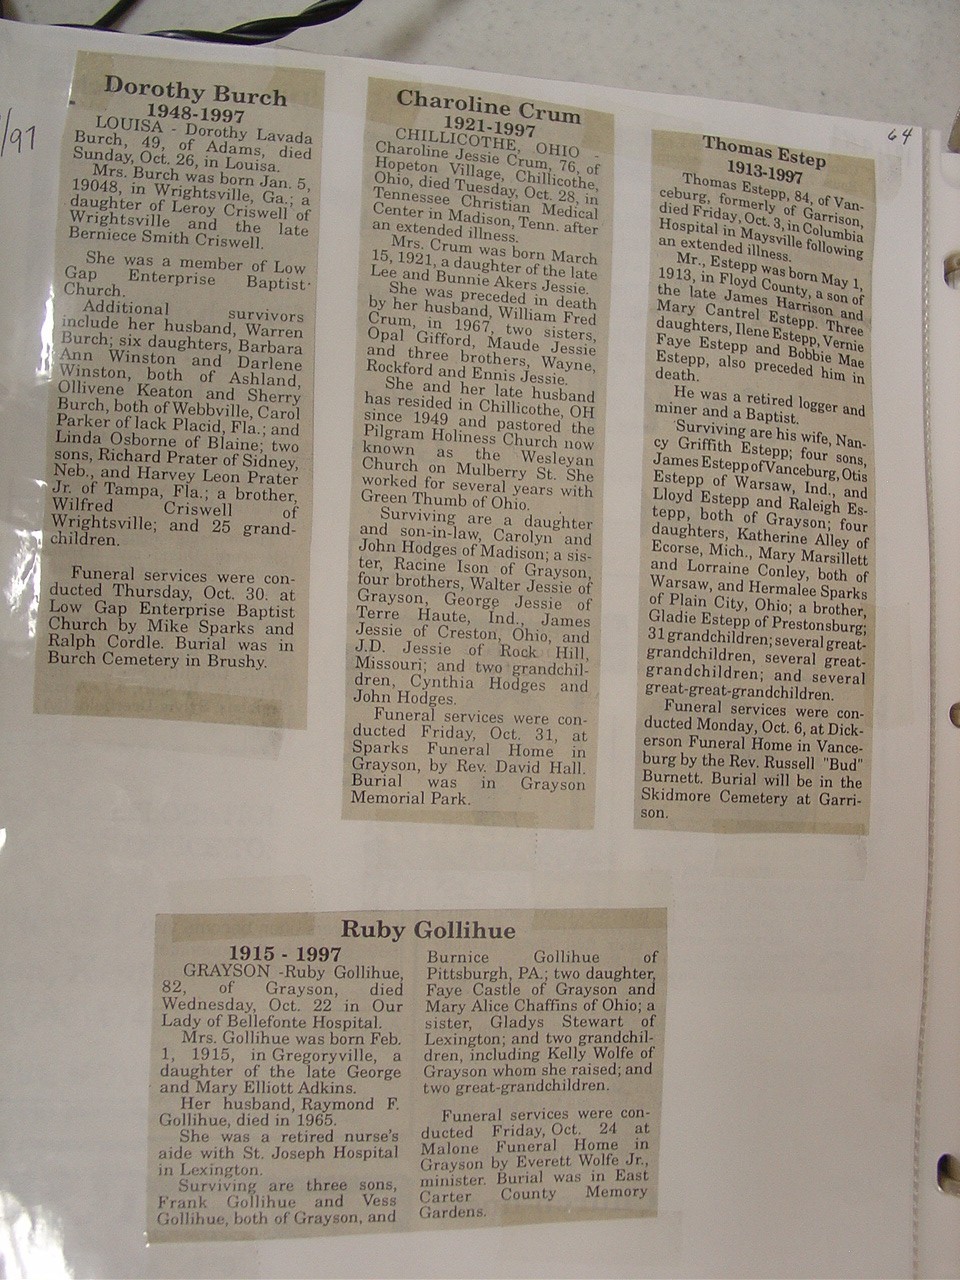 /97
64
Dorothy Burch
1948-1997
LOUISA - Dorothy Lavada
Burch, 49, of Adams, died
Sunday, Oct. 26, in Louisa.
Mrs. Burch was born Jan. 5,
19048, in Wrightsville, Ga.; a
daughter of Leroy Criswell of
Wrightsville and the late
Berniece Smith Criswell.
She was a member of Low
Gap Enterprise Baptist
Church.
Additional survivors
include her husband, Warren
Burch; six daughters, Barbara
Ann Winston and Darlene
Winston, both of Ashland,
Ollivene Keaton and Sherry
Burch, both of Webbville, Carol
Parker of lack Placid, Fla.; and
Linda Osborne of Blaine; two
sons, Richard Prater of Sidney,
Neb., and Harvey Leon Prater
Jr. of Tampa, Fla.; a brother,
Wilfred Criswell of
Wrightsville; and 25 grand-
children.
Funeral services were con-
ducted Thursday, Oct. 30. at
Low Gap Enterprise Baptist
Church by Mike Sparks and
Ralph Cordle. Burial was in
Burch Cemetery in Brushy.
Charoline Crum
1921-1997
CHILLICOTHE, OHIO -
Charoline Jessie Crum, 76, of
Hopeton Village, Chillicothe,
Ohio, died Tuesday, Oct. 28, in
Tennessee Christian Medical
Center in Madison, Tenn. after
an extended illness.
Mrs. Crum was born March
15, 1921, a daughter of the late
Lee and Bunnie Akers Jessie.
She was preceded in death
by her husband, William Fred
Crum, in 1967, two sisters,
Opal Gifford, Maude Jessie
and three brothers, Wayne,
Rockford and Ennis Jessie.
She and her late husband
has resided in Chillicothe, OH
since 1949 and pastored the
Pilgram Holiness Church now
known as the Wesleyan
Church on Mulberry St. She
worked for several years with
Green Thumb of Ohio.
Surviving are a daughter
and son-in-law, Carolyn and
John Hodges of Madison; a sis-
ter, Racine Ison of Grayson,
four brothers, Walter Jessie of
Grayson, George Jessie of
Terre Haute, Ind., James
Jessie of Creston, Ohio, and
J.D. Jessie of Rock Hill,
Missouri; and two grandchil-
dren, Cynthia Hodges and
John Hodges.
Funeral services were con-
ducted Friday, Oct. 31, at
Sparks Funeral Home in
Grayson, by Rev. David Hall.
Burial was in Grayson
Memorial Park.
Thomas Estep
1913-1997
Thomas Estepp, 84, of Van-
ceburg, formerly of Garrison,
died Friday, Oct. 3, in Columbia
Hospital in Maysville following
an extended illness.
Mr., Estepp was born May 1,
1913, in Floyd County, a son of
the late James Harrison and
Mary Cantrel Estepp. Three
daughters, Ilene Estepp, Vernie
Faye Estepp and Bobbie Mae
Estepp, also preceded him in
death.
He was a retired logger and
miner and a Baptist.
Surviving are his wife, Nan-
cy Griffith Estepp; four sons,
James Estepp of Vanceburg, Otis
Estepp of Warsaw, Ind., and
Lloyd Estepp and Raleigh Es-
tepp, both of Grayson; four
daughters, Katherine Alley of
Ecorse, Mich., Mary Marsillett
and Lorraine Conley, both of
Warsaw, and Hermalee Sparks
of Plain City, Ohio; a brother,
Gladie Estepp of Prestonsburg;
31 grandchildren; several great-
grandchildren, several great-
grandchildren; and several
great-great-grandchildren.
Funeral services were con-
ducted Monday, Oct. 6, at Dick-
erson Funeral Home in Vance-
burg by the Rev. Russell "Bud"
Burnett. Burial will be in the
Skidmore Cemetery at Garri-
son.
Ruby Gollihue
1915 - 1997
GRAYSON -Ruby Gollihue,
82, of Grayson, died
Wednesday, Oct. 22 in Our
Lady of Bellefonte Hospital.
Mrs. Gollihue was born Feb.
1, 1915, in Gregoryville, a
daughter of the late George
and Mary Elliott Adkins.
Her husband, Raymond F.
Gollihue, died in 1965.
She was a retired nurse's
aide with St. Joseph Hospital
in Lexington.
Surviving are three sons,
Frank Gollihue and Vess
Gollihue, both of Grayson, and
Burnice Gollihue of
Pittsburgh, PA.; two daughter,
Faye Castle of Grayson and
Mary Alice Chaffins of Ohio; a
sister, Gladys Stewart of
Lexington; and two grandchil-
dren, including Kelly Wolfe of
Grayson whom she raised; and
two great-grandchildren.
Funeral services were con-
ducted Friday, Oct. 24 at
Malone Funeral Home in
Grayson by Everett Wolfe Jr.,
minister. Burial was in East
Carter County Memory
Gardens.